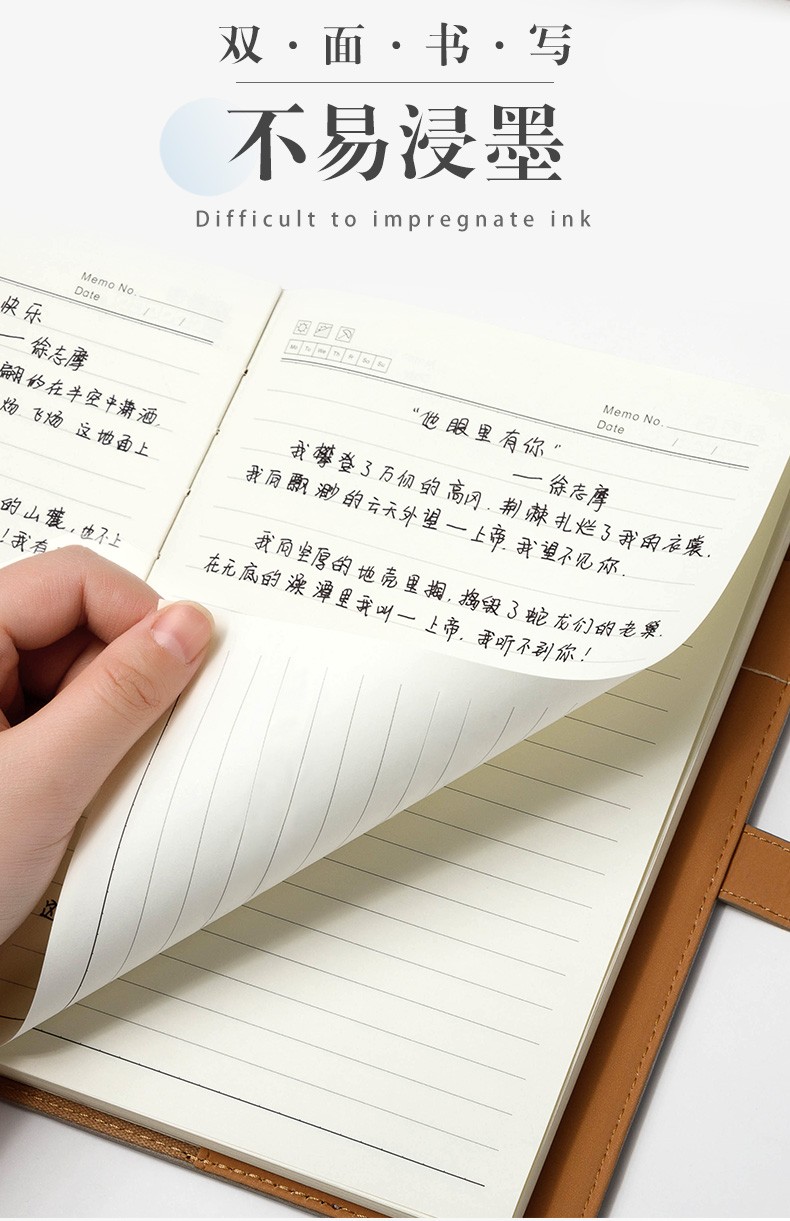 双·面·书·写
不易浸墨
Difficult to impregnate ink
Memo No.
Date / /
快乐
一徐志摩
翩的在半空中潇洒,
飏 飞飏 这地面上
的山麓,也不上
!我有
Memo No.
Date / /
Mo Tu We Th Fr Sa Su
"他眼里有你"
——徐志摩
我攀登了万仞的高冈,荆棘扎烂了我的衣裳.
我向飘渺的云天外望一上帝,我望不见你.
我向坚厚的地壳里掏,捣毁了蛇龙们的老巢.
在无底的深潭里我叫一上帝,我听不到你!
这